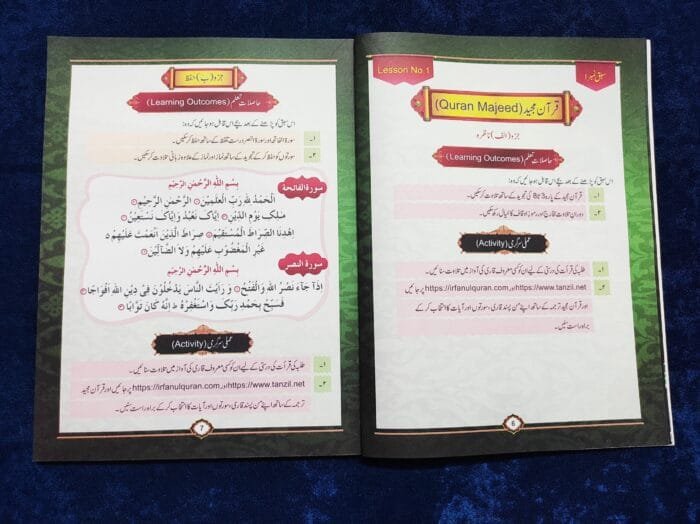 سبق نمبر 1
Lesson No.1
قرآن مجید (Quran Majeed)
جزو (الف) ناظرہ
حاصلات تعلم (Learning Outcomes)
اس سبق کو پڑھنے کے بعد بچے اس قابل ہو جائیں کہ وہ:
۱۔ قرآن مجید کے پارہ 3 تا 8 کی تجوید کے ساتھ تلاوت کر سکیں۔
۲۔ دوران تلاوت مخارج اور رموز اوقاف کا خیال رکھ سکیں۔
عملی سرگرمی (Activity)
۱۔ طلبہ کی قرأت کی درستی کے لیے ان کو کسی معروف قاری کی آواز میں تلاوت سنائیں۔
۲۔ https://www.tanzil.net اور https://irfanulquran.com پر جائیں
اور قرآن مجید ترجمہ کے ساتھ اپنے من پسند قاری، سورتوں اور آیات کا انتخاب کر کے
براہ راست سنیں۔
6
جزو (ب) حفظ
حاصلات تعلم (Learning Outcomes)
اس سبق کو پڑھنے کے بعد بچے اس قابل ہو جائیں کہ وہ:
۱۔ سورۃ الفاتحہ اور سورۃ النصر درست تلفظ کے ساتھ حفظ کر سکیں۔
۲۔ سورتوں کو حفظ کر کے تجوید کے ساتھ نماز اور نماز کے علاوہ زبانی تلاوت کر سکیں۔
سورۃ الفاتحۃ
بِسْمِ اللّٰهِ الرَّحْمٰنِ الرَّحِيْمِ
اَلْحَمْدُ لِلّٰهِ رَبِّ الْعٰلَمِيْنَ ① الرَّحْمٰنِ الرَّحِيْمِ ②
مٰلِكِ يَوْمِ الدِّيْنِ ③ اِيَّاكَ نَعْبُدُ وَاِيَّاكَ نَسْتَعِيْنُ ④
اِهْدِنَا الصِّرَاطَ الْمُسْتَقِيْمَ ⑤ صِرَاطَ الَّذِيْنَ اَنْعَمْتَ عَلَيْهِمْ ⑥
غَيْرِ الْمَغْضُوْبِ عَلَيْهِمْ وَلَا الضَّآلِّيْنَ ⑦
سورۃ النصر
بِسْمِ اللّٰهِ الرَّحْمٰنِ الرَّحِيْمِ
اِذَا جَآءَ نَصْرُ اللّٰهِ وَالْفَتْحُ ① وَ رَاَيْتَ النَّاسَ يَدْخُلُوْنَ فِيْ دِيْنِ اللّٰهِ اَفْوَاجًا ②
فَسَبِّحْ بِحَمْدِ رَبِّكَ وَاسْتَغْفِرْهُ ط اِنَّهٗ كَانَ تَوَّابًا ③
عملی سرگرمی (Activity)
۱۔ طلبہ کی قرأت کی درستی کے لیے ان کو کسی معروف قاری کی آواز میں تلاوت سنائیں۔
۲۔ https://www.tanzil.net اور https://irfanulquran.com پر جائیں اور قرآن مجید
ترجمہ کے ساتھ اپنے من پسند قاری، سورتوں اور آیات کا انتخاب کر کے براہ راست سنیں۔
7